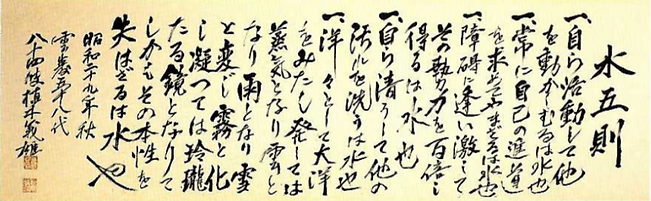 水五則
一、自ら活動して他
を動かしむるは水也
一、常に自己の進道
を求めてやまざるは水也
一、障碍に逢い激して
その勢力を百倍し
得るは水也
一、自ら清うして他の
汚れを洗うは水也
一、洋々として大洋
をみたし発しては
蒸気となり雲と
なり雨となり雪
と変じ霧と化
し凝つては玲瓏
たる鏡となりて
しかもその本性を
失はざるは水也
昭和二十九年秋
雲巌 八代
八十四叟植木義雄